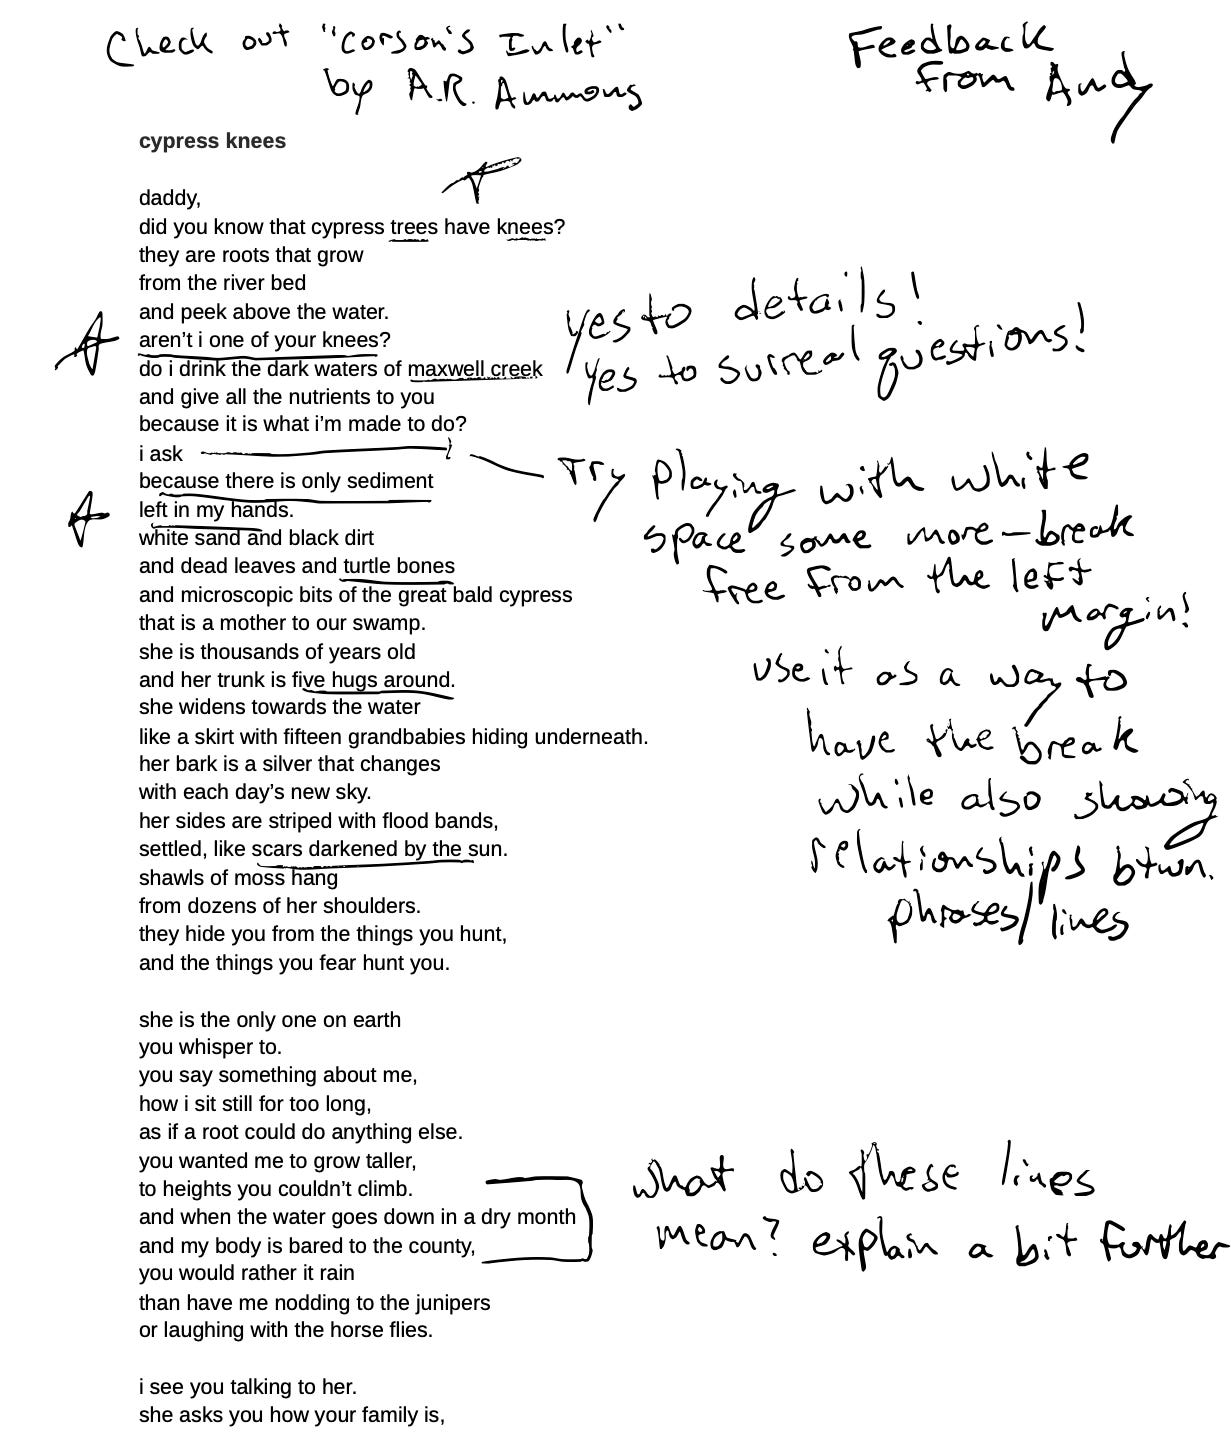 Check out "Corson's Inlet"
by A.R. Ammons
Feedback
from Andy
cypress knees
daddy,
did you know that cypress trees have knees?
they are roots that grow
from the river bed
and peek above the water.
aren't i one of your knees?
do i drink the dark waters of maxwell creek
and give all the nutrients to you
because it is what i'm made to do?
yes to details!
yes to surreal questions!
i ask
because there is only sediment
left in my hands.
white sand and black dirt
and dead leaves and turtle bones
and microscopic bits of the great bald cypress
that is a mother to our swamp.
she is thousands of years old
and her trunk is five hugs around.
she widens towards the water
like a skirt with fifteen grandbabies hiding underneath.
her bark is a silver that changes
with each day's new sky.
her sides are striped with flood bands,
settled, like scars darkened by the sun.
shawls of moss hang
from dozens of her shoulders.
they hide you from the things you hunt,
and the things you fear hunt you.
Try playing with white
space some more—break
free from the left
margin!
use it as a way to
have the break
while also showing
relationships btwn.
phrases/lines
she is the only one on earth
you whisper to.
you say something about me,
how i sit still for too long,
as if a root could do anything else.
you wanted me to grow taller,
to heights you couldn't climb.
and when the water goes down in a dry month
and my body is bared to the county,
you would rather it rain
than have me nodding to the junipers
or laughing with the horse flies.
what do these lines
mean? explain a bit further
i see you talking to her.
she asks you how your family is,